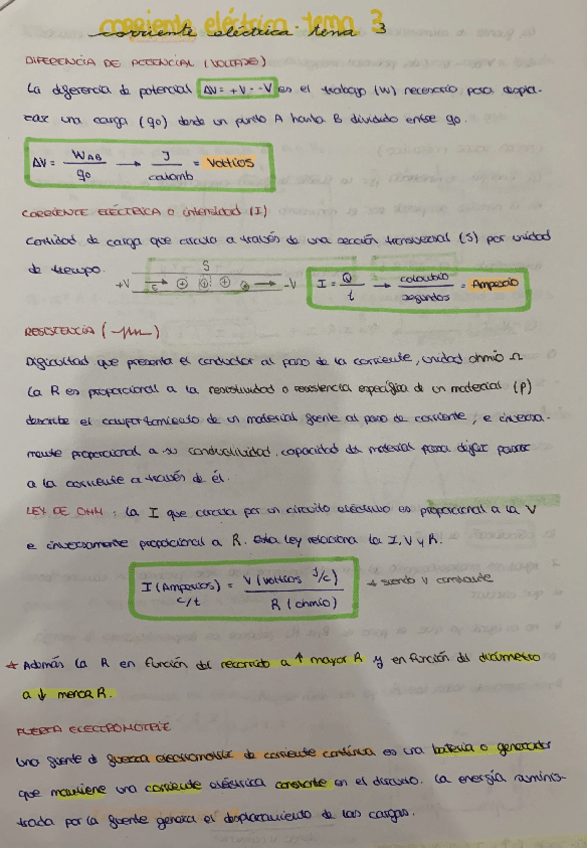 corriente eléctrica tema 3
corriente eléctrica - tema 3
DIFERENCIA DE POTENCIAL (VOLTAJE)
La diferencia de potencial ΔV = +V - -V es el trabajo (W) necesario para despla-
zar una carga (q0) desde un punto A hasta B dividido entre q0.
ΔV = WAB / q0 → J / coulomb = Voltios
CORRIENTE ELÉCTRICA o intensidad (I)
Cantidad de carga que circula a través de una sección transversal (S) por unidad
de tiempo.
S
+V → -V
I = Q / t → coloubio / segundos = Amperio
RESISTENCIA
Dificultad que presenta el conductor al paso de la corriente, unidad ohmio Ω
La R es proporcional a la resistividad o resistencia específica de un material (ρ)
describe el comportamiento de un material frente al paso de corriente, e inversa-
mente proporcional a su conductividad. capacidad del material para dejar pasar
a la corriente a través de él.
LEY DE OHM: la I que circula por un circuito eléctrico es proporcional a la V
e inversamente proporcional a R. Esta ley relaciona la I, V y R.
I (Amperios) C/t = V (voltios J/C) / R (ohmio)
→ siendo V constante
* Además la R en función del recorrido a ↑ mayor R y en función del diámetro
a ↓ menor R.
FUERZA ELECTROMOTRIZ
Una fuente de fuerza electromotriz de corriente continua es una batería o generador
que mantiene una corriente eléctrica constante en el circuito. La energía suminis-
trada por la fuente genera el desplazamiento de las cargas.